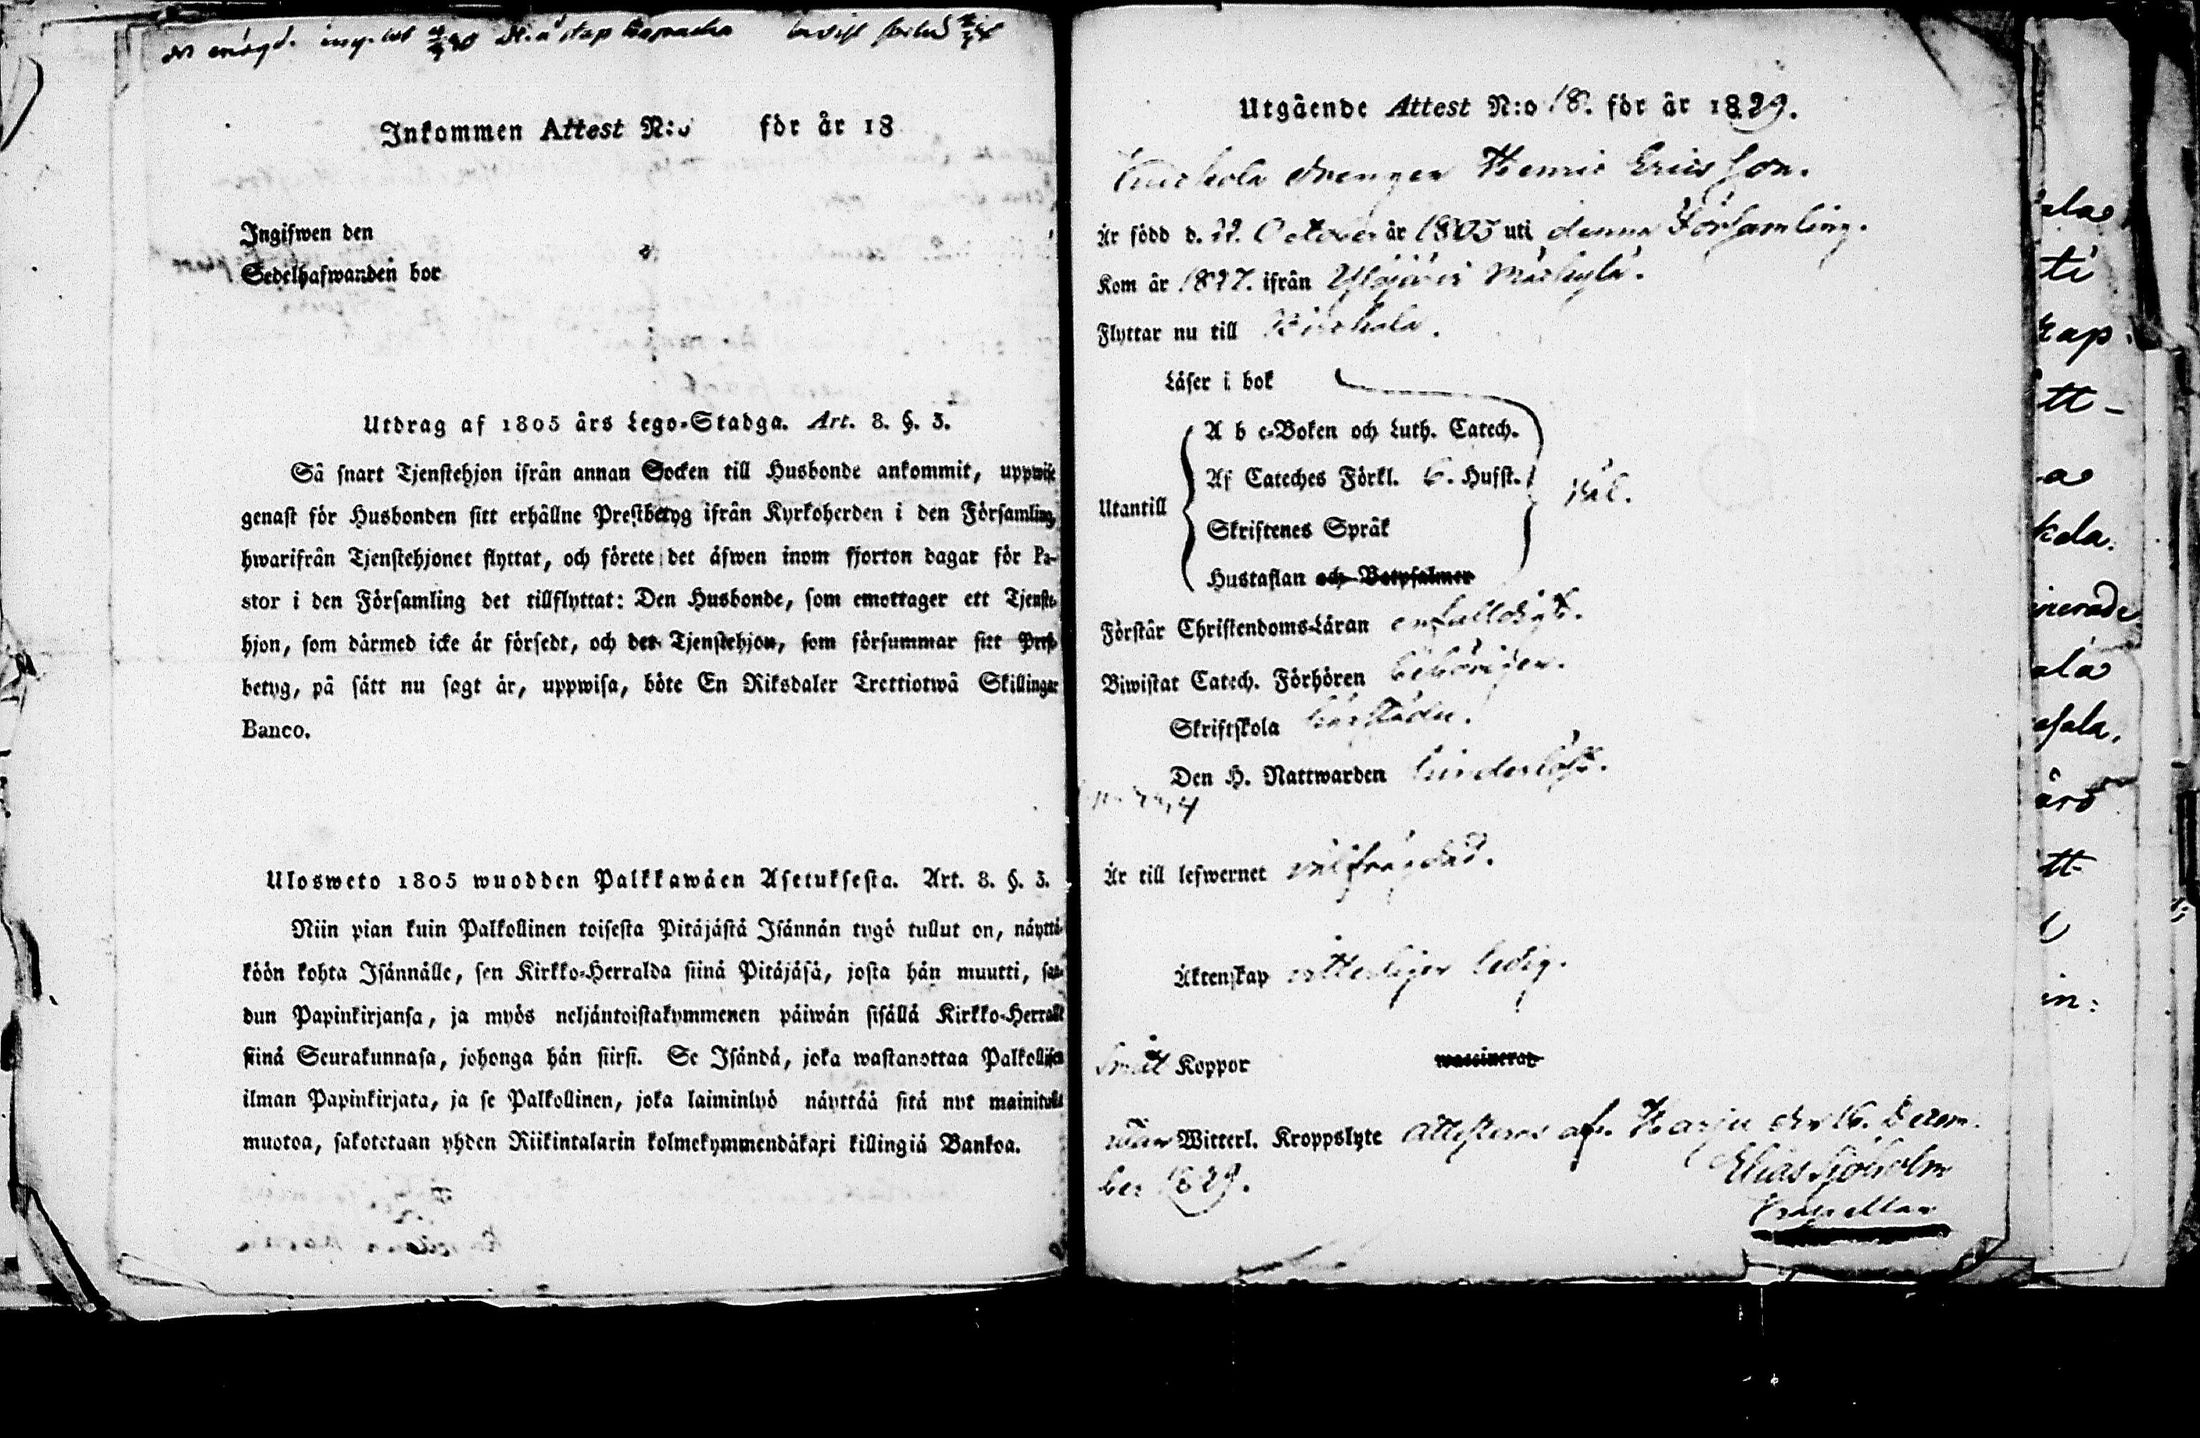 Inkommen Attest N:o för år 18
Ingifwen den
Sedelhafwanden bor
Utdrag af 1805 års Lego-Stadga. Art. 8. §. 3.
Så snart Tjenstehjon ifrån annan Socken till Husbonde ankommit, uppwise
genast för Husbonden sitt erhållne Prestbetyg ifrån Kyrkoherden i den Församling,
hwarifrån Tjenstehjonet flyttat, och förete det äfwen inom fjorton dagar för Pa-
stor i den Församling det tillflyttat: Den Husbonde, som emottager ett Tjenste-
hjon, som därmed icke är försedt, och det Tjenstehjon, som försummar sitt Prest-
betyg, på sätt nu sagt är, uppwisa, böte En Riksdaler Trettiotwå Skillingar
Banco.
Ulosweto 1805 wuodden Palkkawäen Asetuksesta. Art. 8. §. 3.
Niin pian kuin Palkollinen toisesta Pitäjästä Isännän tygö tullut on, näyttä-
köön kohta Isännälle, sen Kirkko-Herralda siinä Pitäjäsä, josta hän muutti, saa-
dun Papinkirjansa, ja myös neljäntoistakymmenen päiwän sisällä Kirkko-Herralle
siinä Seurakunnasa, johonga hän siirsi. Se Isändä, joka wastanottaa Palkollisen
ilman Papinkirjata, ja se Palkollinen, joka laiminlyö näyttää sitä nyt mainitulla
muotoa, sakotetaan yhden Riikintalarin kolmekymmendäkaxi killingiä Bankoa.
Utgående Attest N:o 18. för år 1829.
drengen Henric Ericsson.
Är född d. 22. October år 1805 uti denna Församling.
Kom år 1827. ifrån Ylöjärvi
Flyttar nu till Birkala.
Läser i bok
A b c-Boken och Luth. Catech.
Af Cateches Förkl. 6. Hufst.
Utantill
Skriftenes Språk
Hustaflan och Botpsalmer
väl.
Förstår Christendoms-Läran enfalldigt.
Biwistat Catech. Förhören behörigen.
Skriftskola härstädes.
Den H. Nattwarden hinderlöst.
Är till lefwernet wälfrägdad.
Äktenskap witterligen ledig.
Smått Koppor waccinerad
utan Witterl. Kroppslyte attesteras af. Harju den 16. Decem-
ber 1829.
Elias Sjöholm
Capellan